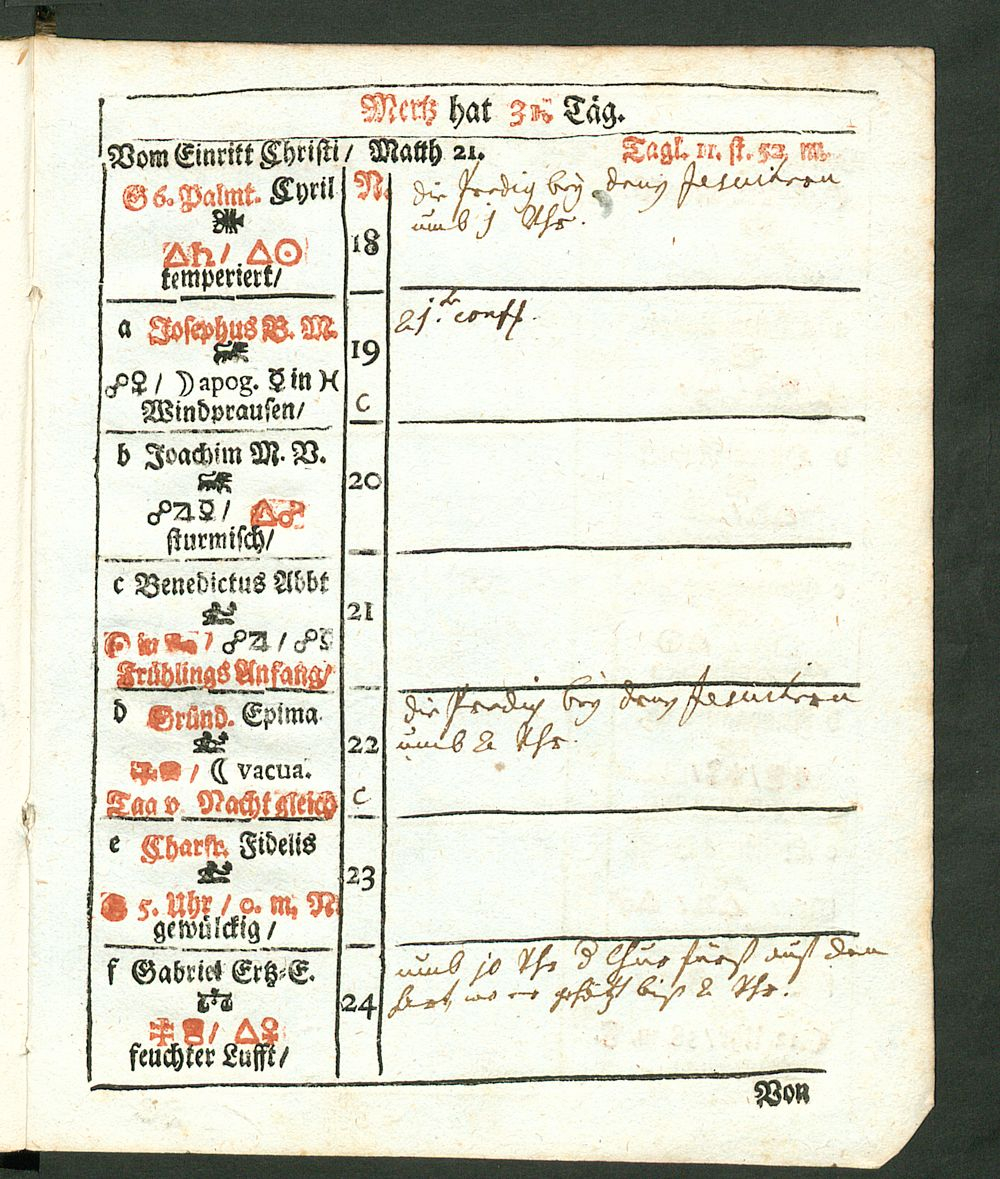 Mertz hat 31. Täg.
Vom Einritt Christi / Matth 21. Tagl. 11. st. 52. m.
G 6. Palmt. Cyril N.
18
△♄ / △☉
temperiert /
die Predig bey denen Jesuitern
umb 1 Uhr.
a Josephus B. M.
19
☍♀ / ☽ apog. ☿ in ♓
Windprausen /
C
b Joachim M. V.
20
☍♃☿ / △♂
sturmisch /
c Benedictus Abbt
21
☉ in / ☍♃ / ☍☿
Frühlings Anfang /
d Gründ. Epima.
22
/ ☾ vacua.
Tag v. Nacht gleich
C
die Predig bey denen Jesuitern
umb 2 Uhr.
e Charfr. Fidelis
23
5. Uhr / 0. m. N.
gewülckig /
f Gabriel Ertz-E.
24
/ △♀
feuchter Lufft /
umb 10 Uhr Chur fürst auß
biß 2 Uhr.
Von